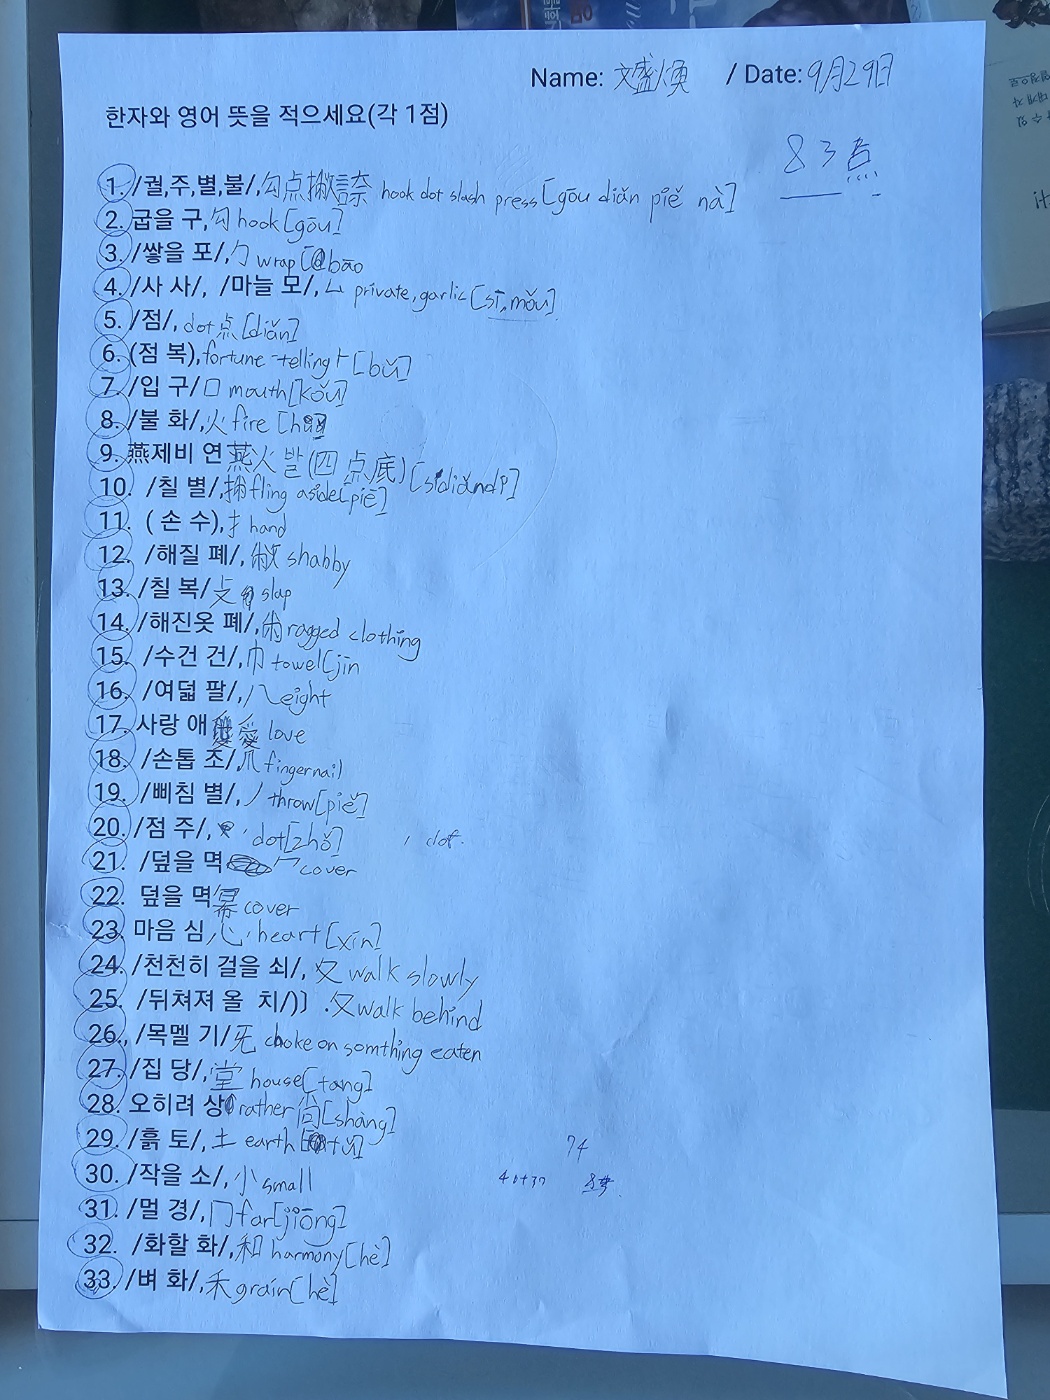 Name: 文盛煥 / Date: 9月29日
한자와 영어 뜻을 적으세요(각 1점)
83点
1. /궐,주,별,불/, 勾点撇 hook dot slash press [gōu diǎn piě nà]
2. 굽을 구, 勾 hook [gōu]
3. /쌓을 포/, 勹 wrap [bāo
4. /사 사/, /마늘 모/, ㄙ private, garlic [sī, mǒu]
5. /점/, dot 点 [diǎn]
6. (점 복), fortune-telling 卜 [bǔ]
7. /입 구/ 口 mouth [kǒu]
8. /불 화/, 火 fire
9. 燕제비 연 燕火 발 (四点底) [sìdiǎndǐ]
10. /칠 별/, fling aside [piē]
11. ( 손 수), 扌 hand
12. /해질 폐/, 敝 shabby
13. /칠 복/ 攴 slap
14. /해진옷 폐/, ragged clothing
15. /수건 건/, 巾 towel [jīn
16. /여덟 팔/, 八 eight
17. 사랑 애 愛 love
18. /손톱 조/, 爪 fingernail
19. /삐침 별/, 丿 throw [piě]
20. /점 주/, 丶 dot [zhǔ] 丶 dot.
21. /덮을 멱 冖 cover
22. 덮을 멱 冪 cover
23. 마음 심, 心 heart [xīn]
24. /천천히 걸을 쇠/, 夊 walk slowly
25. /뒤쳐져 올 치/)〕. 夂 walk behind
26., /목멜 기/ 旡 choke on somthing eaten
27. /집 당/, 堂 house [tang]
28. 오히려 상 rather 尙 [shàng]
29. /흙 토/, 土 earth [tǔ]
74
30. /작을 소/, 小 small
31. /멀 경/, 冂 far [jiōng]
32. /화할 화/, 和 harmony [hè]
33. /벼 화/, 禾 grain [hè]